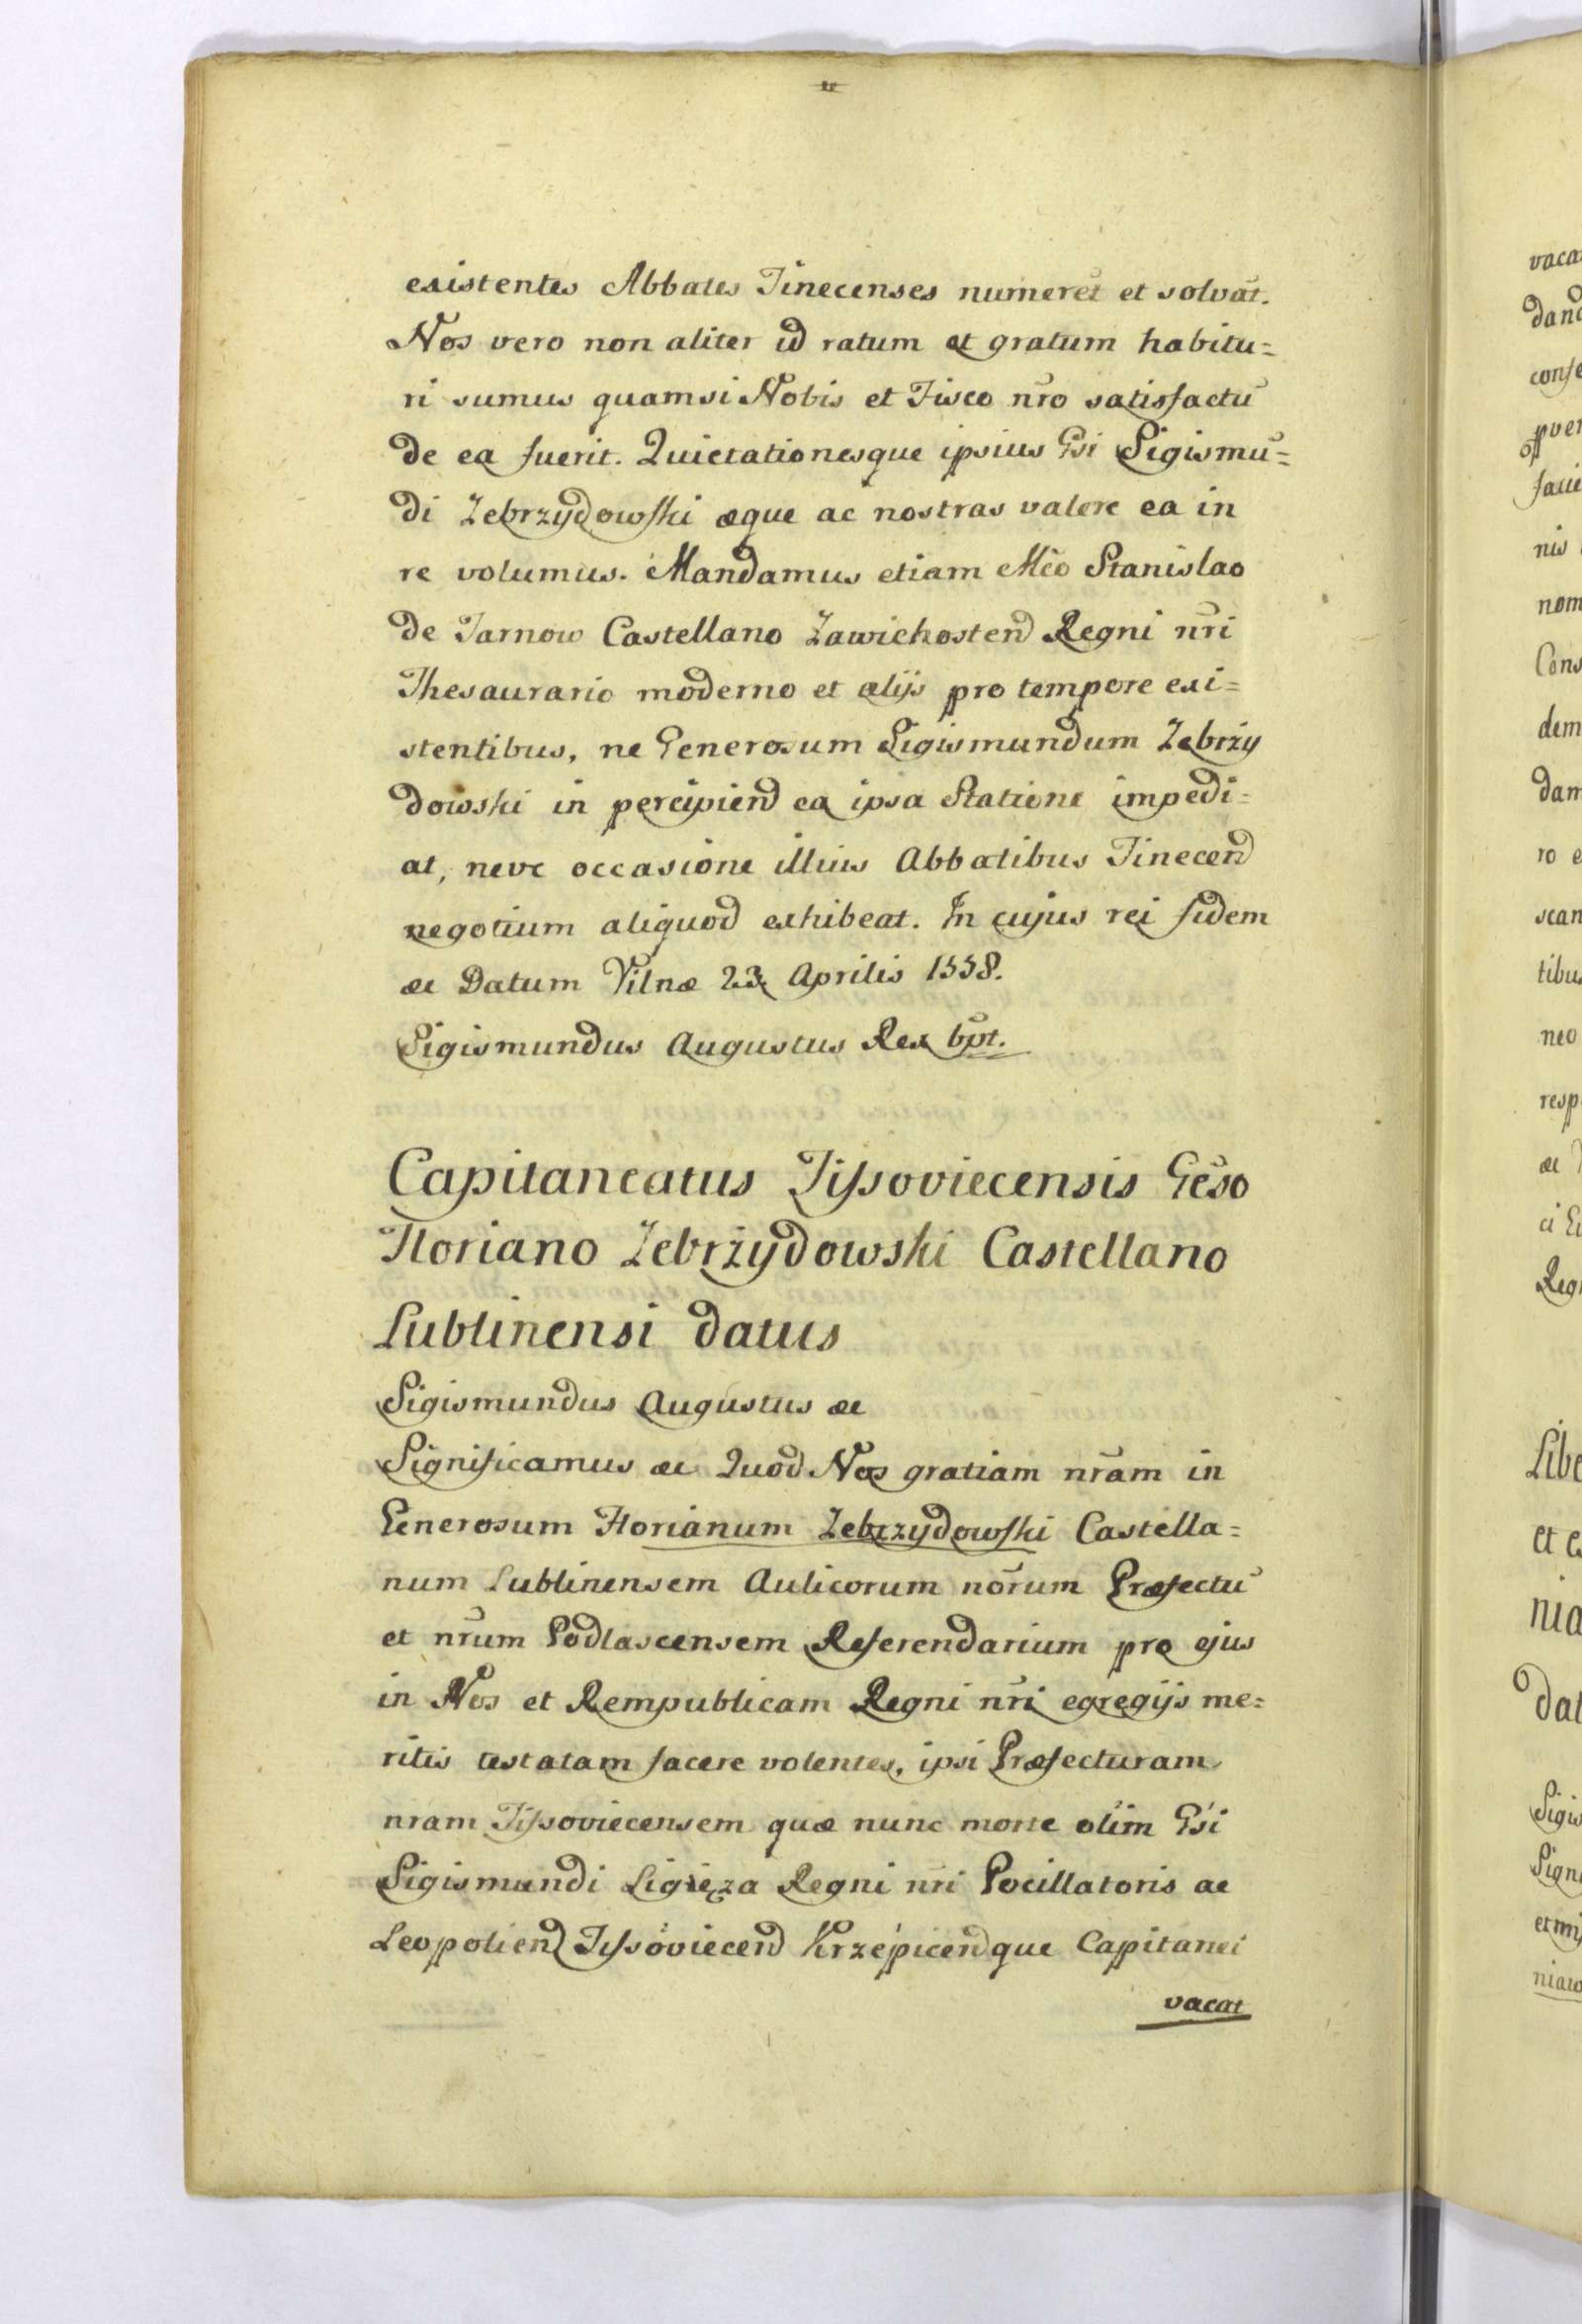 existentes Abbates Tinecenses numeret et solvāt.
Nos vero non aliter id ratum et gratum habitu=
ri sumus quamsi Nobis et Fisco nr̄o satisfactū
de ea fuerit. Quietationesque ipsius Gsi Sigismū=
di Zebrzydowſki æque ac nostras valere ea in
re volumus. Mandamus etiam Mco Stanislao
de Tarnow Castellano Zawichosten Regni nr̄i
Thesaurario moderno et alijs pro tempore exi=
stentibus, ne Generosum Sigismundum Zebrży
dowski in percipien ea ipsa Statione impedi=
at, neve occasione illius Abbatibus Tinecen
negotium aliquod exhibeat. In cujus rei fidem
ac Datum Vilnæ 23 Aprilis 1558.
Sigismundus Augustus Rex bpt.
Capitaneatus Tiſsoviecensis Gēso
Floriano Zebrżydowski Castellano
Lublinensi datus
Sigismundus Augustus ac
Significamus ac Quod Nos gratiam nr̄am in
Generosum Florianum Zebrzydowſki Castella=
num Lublinensem Aulicorum nōrum Præfectū
et nr̄um Podlascensem Referendarium pro ejus
in Nos et Rempublicam Regni nr̄i egregijs me=
ritis testatam facere volentes, ipsi Præfecturam
nram Tiſsoviecensem quæ nunc morte olim Gsi
Sigismundi Ligięza Regni nr̄i Pocillatoris ac
Leopolien Tiſsoviecen Krzepicenque Capitanei
vacat
vaca